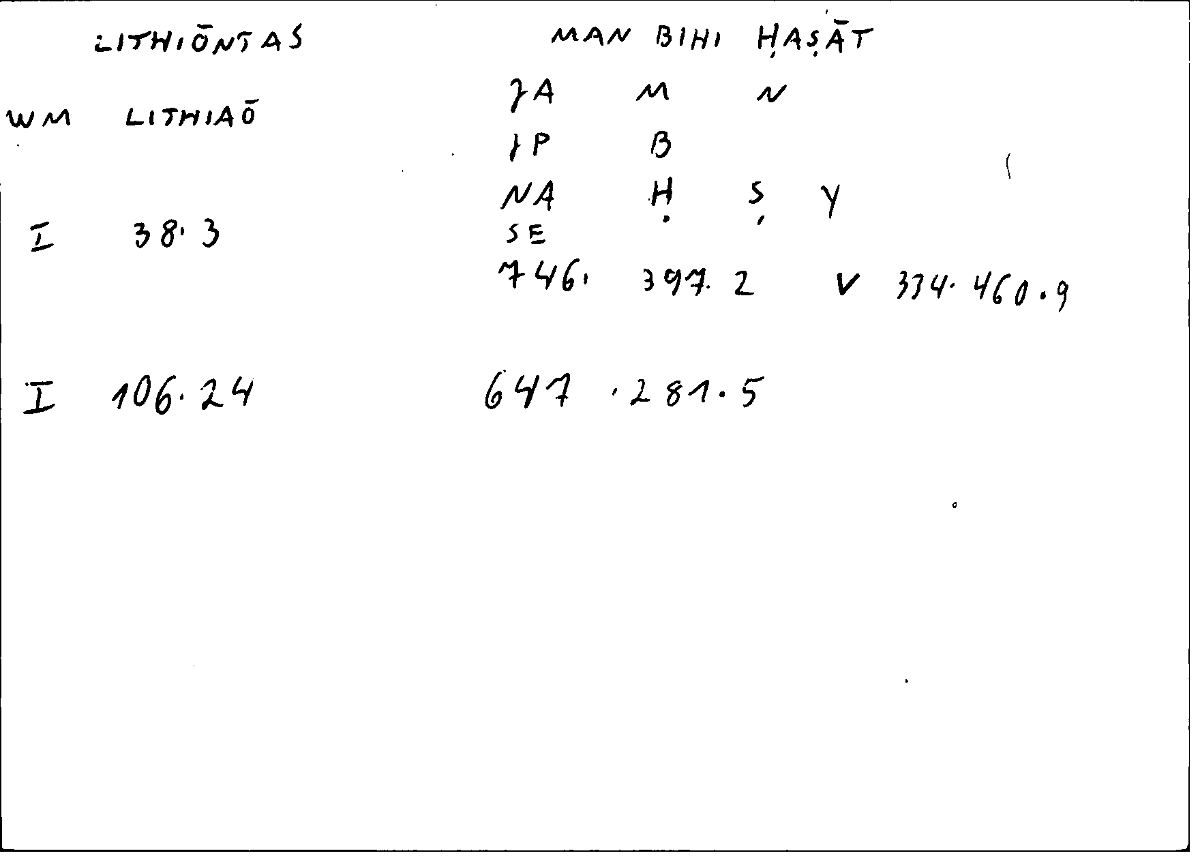 LITHIŌNTAS MAN BIHI ḤAṢĀT
JA M N
WM LITHIAŌ
JP B
NA Ḥ Ṣ Y
I 38.3 SE
746. 397.2 V 334.460.9
I 106.24 647.281.5